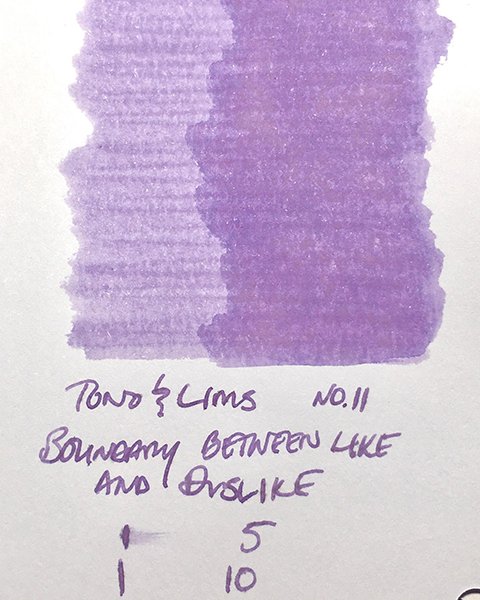 TONO & LIMS NO.11
BOUNDARY BETWEEN LIKE
AND DISLIKE
1 5
1 10